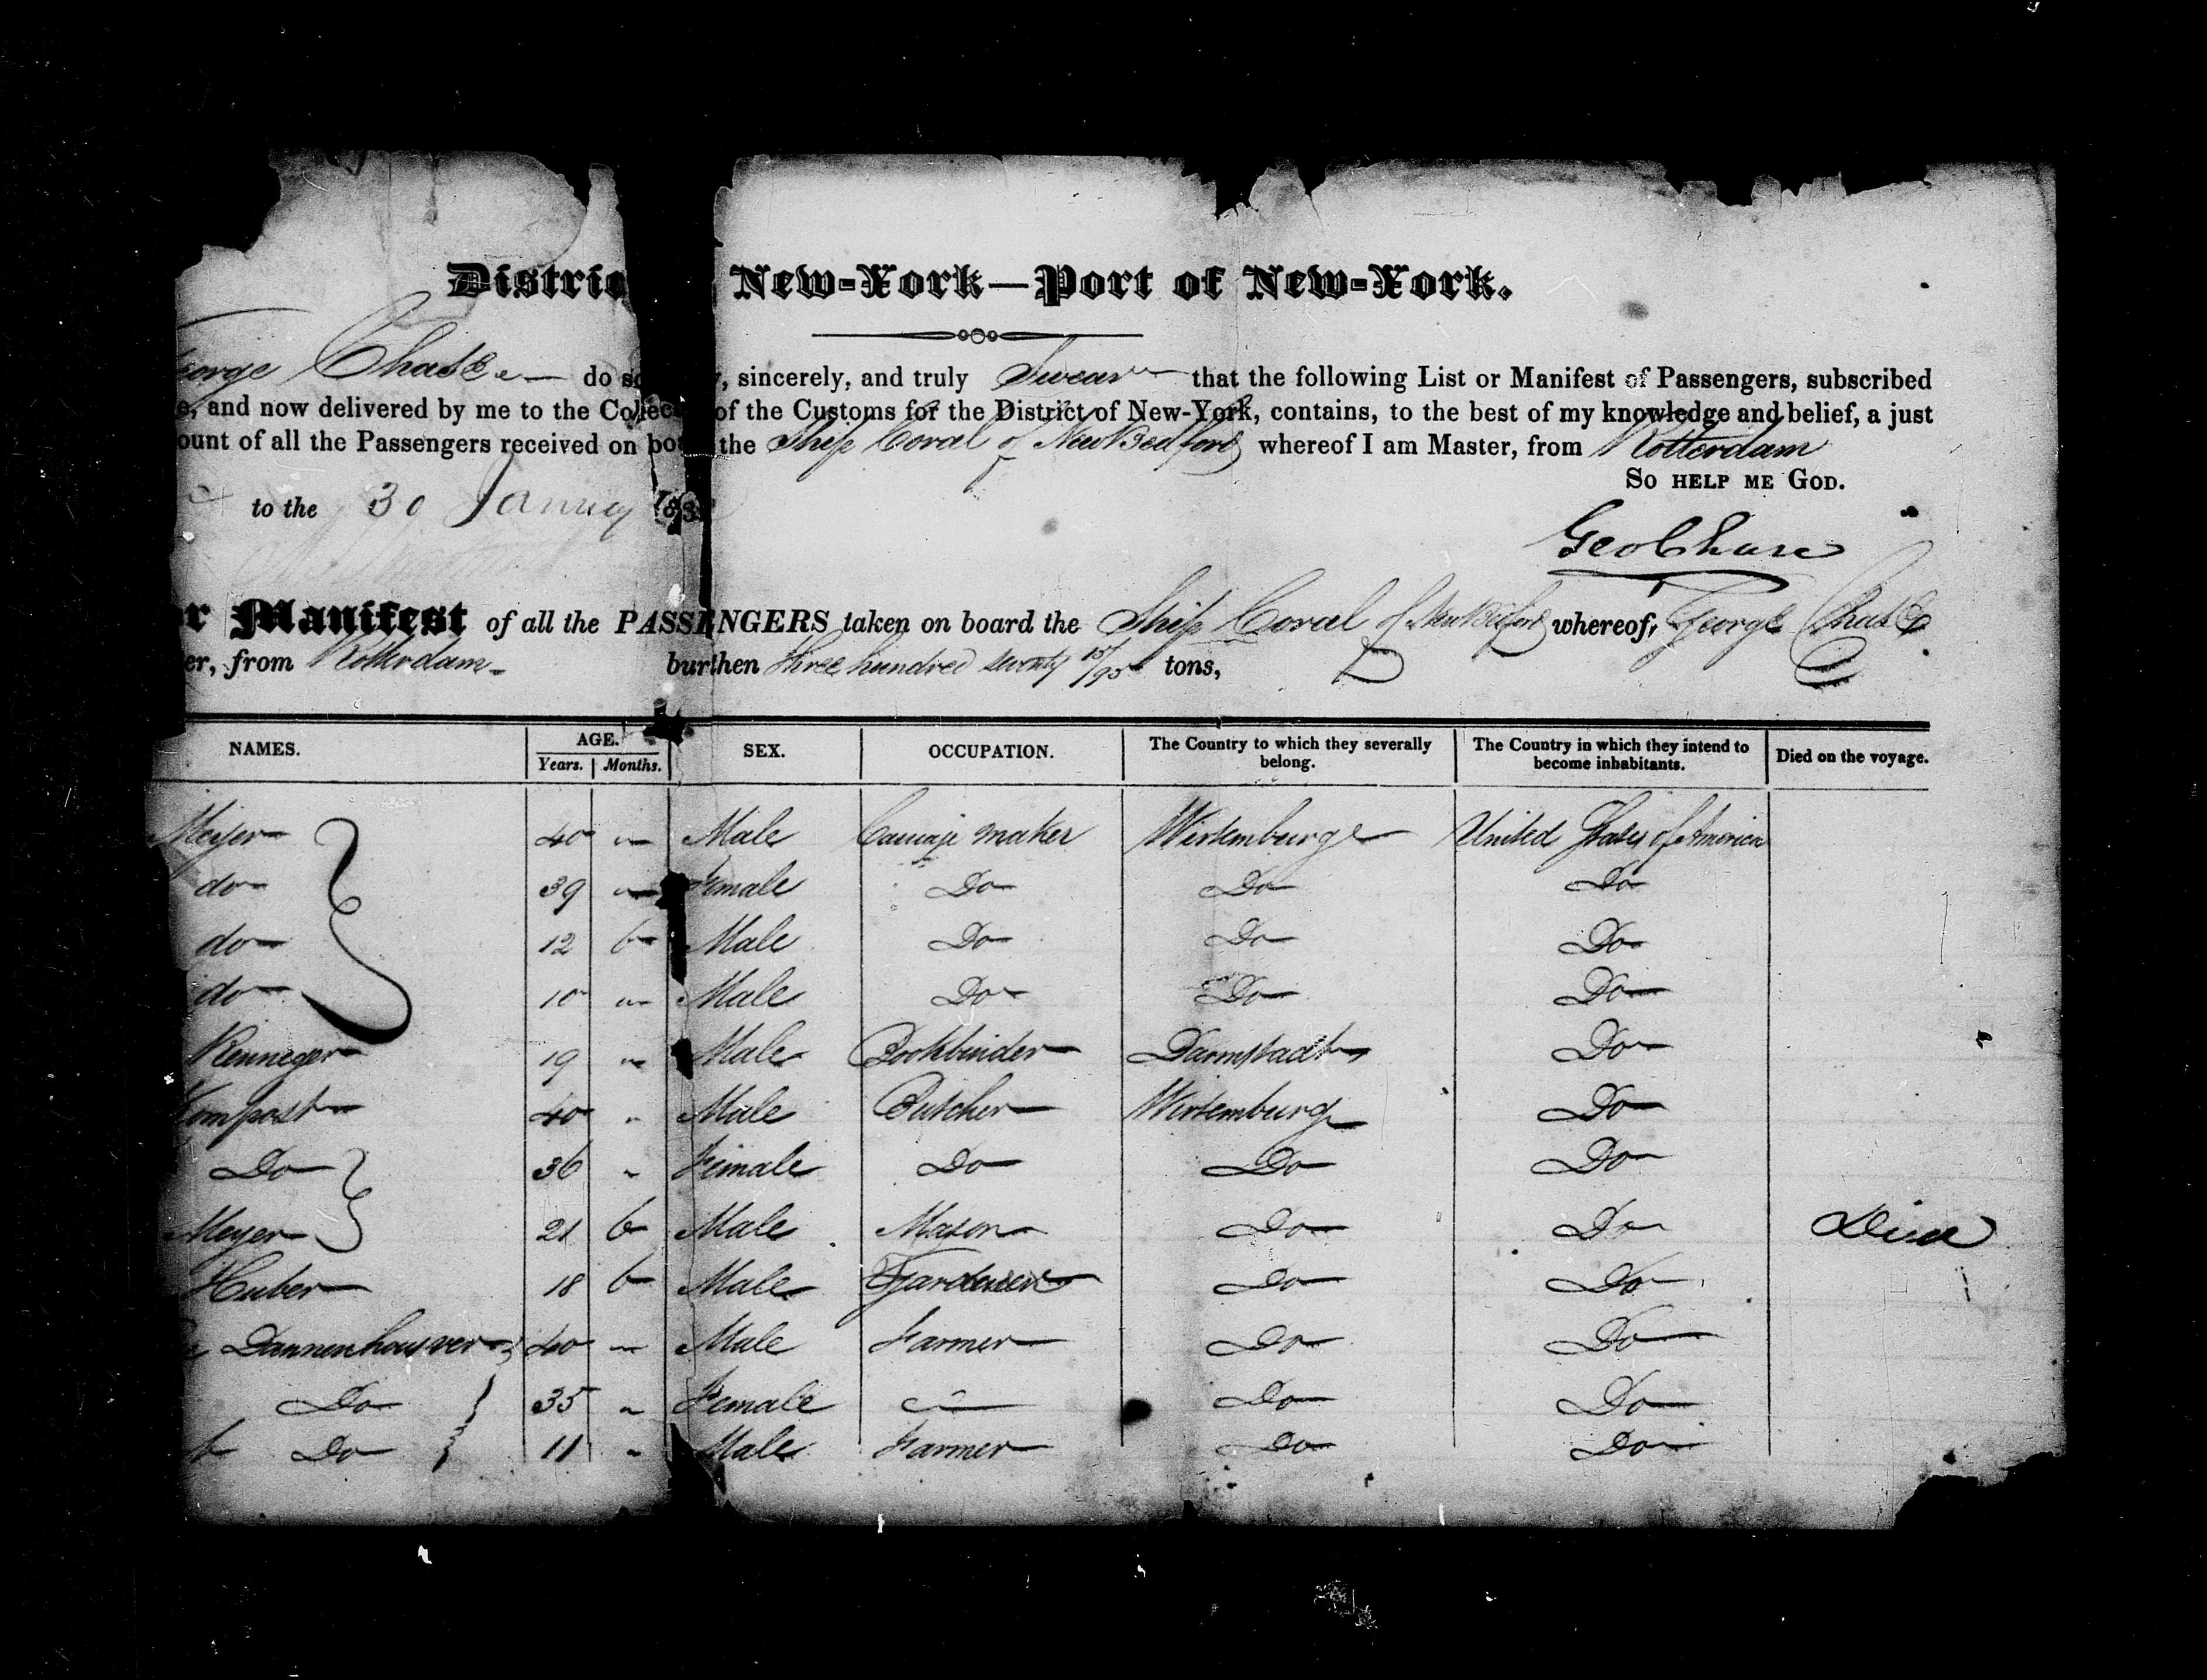 Distric New-York—Port of New-York.
eorge Chase do so y, sincerely, and truly Swear that the following List or Manifest of Passengers, subscribed
e, and now delivered by me to the Collec of the Customs for the District of New-York, contains, to the best of my knowledge and belief, a just
ount of all the Passengers received on bo the Ship Coral of New Bedford whereof I am Master, from Rotterdam
So help me God.
to the 30 January 183
Geo Chase
or Manifest of all the PASSENGERS taken on board the Ship Coral of New Bedford whereof, George Chase
er, from Rotterdam burthen three hundred seventy 15/95 tons,
NAMES. AGE. Years. Months. SEX. OCCUPATION. The Country to which they severally belong. The Country in which they intend to become inhabitants. Died on the voyage.
Meyer 40 " Male Carriage maker Wirtemburg United States of America
do 39 " Female Do Do Do
do 12 6 Male Do Do Do
do 10 " Male Do Do Do
Renneger 19 " Male Bookbinder Darmstadt Do
Kompost 40 " Male Butcher Wirtemburg Do
Do 36 " Female Do Do Do
Meyer 21 6 Male Mason Do Do Died
Huber 18 6 Male Gardener Do Do
Dannenhauver 40 " Male Farmer Do Do
Do 35 " Female Do Do
Do 11 " Male Farmer Do Do